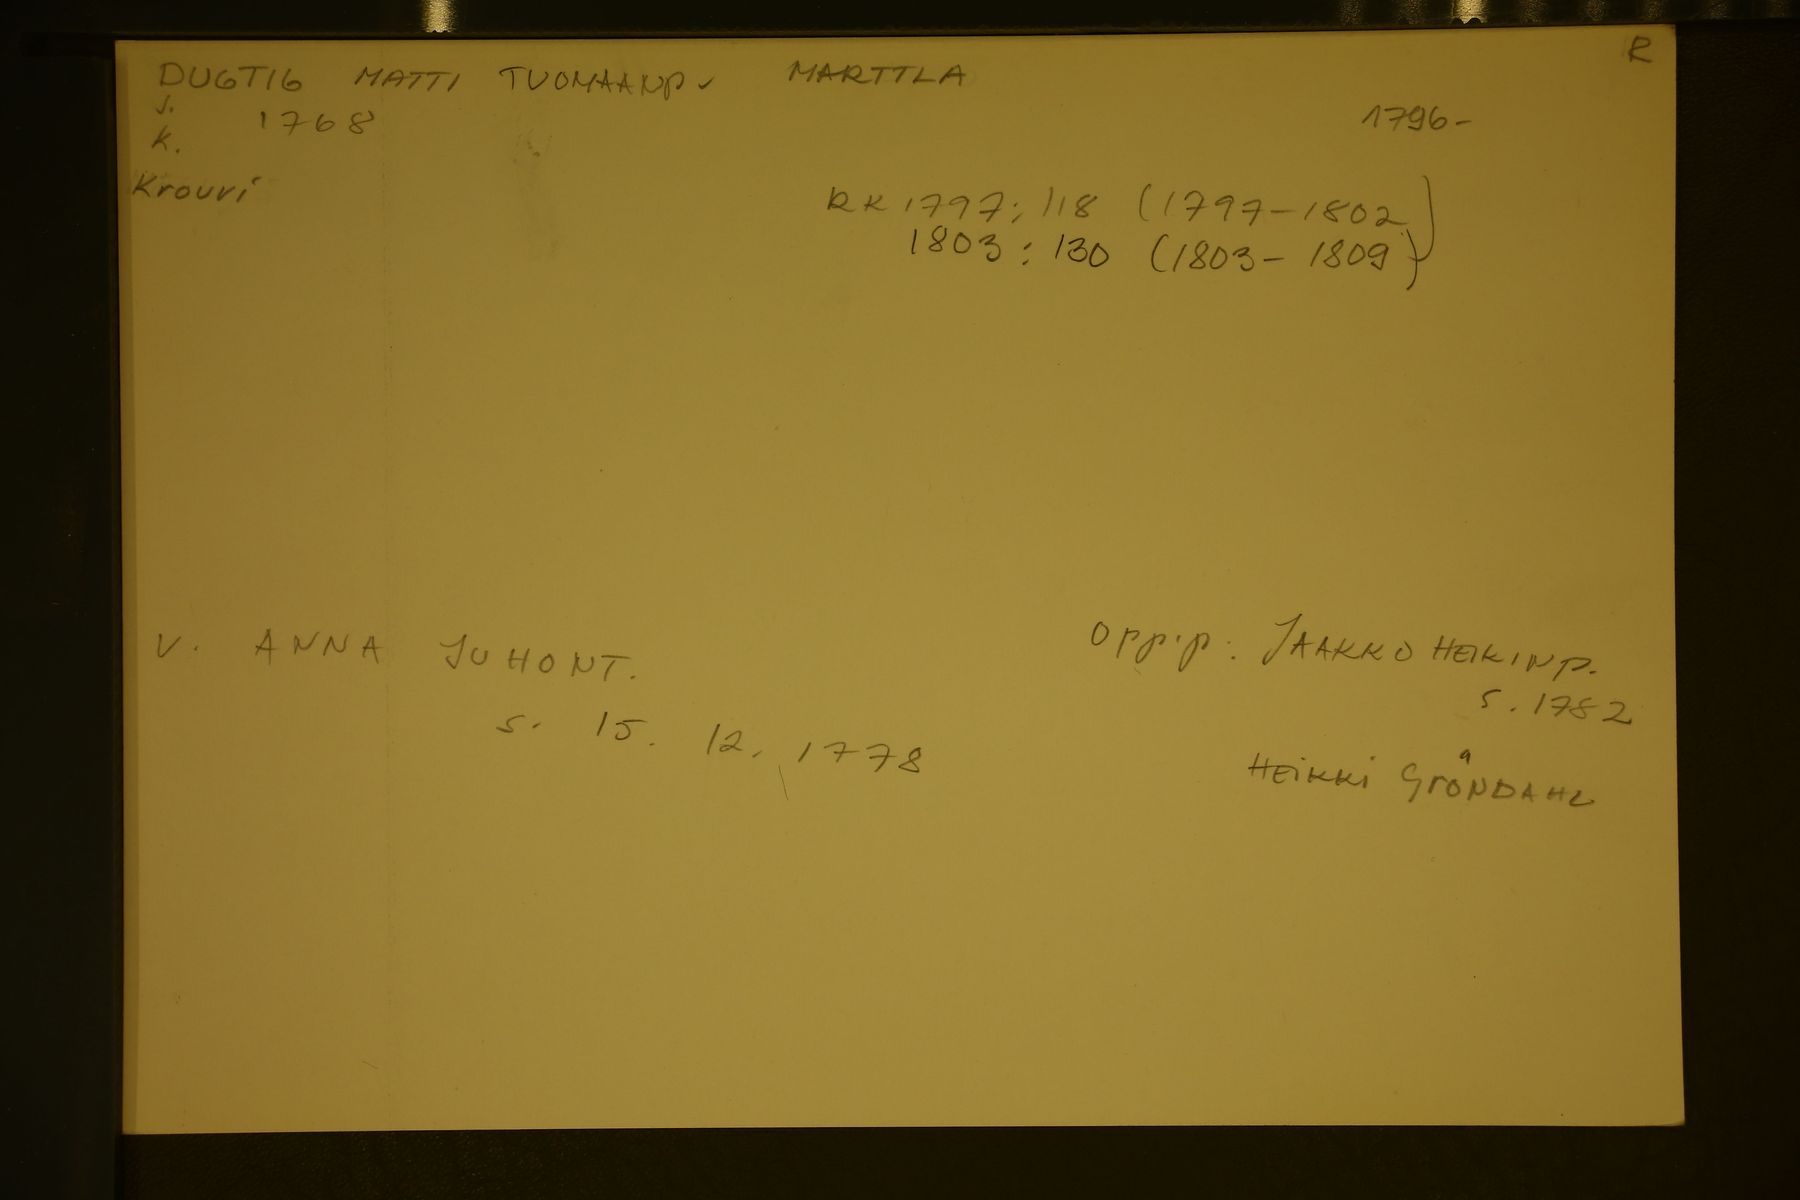 R
DUGTIG MATTI TUOMAANP. MARTTLA
s. 1768
1796-
k.
Krouvi
RK 1797: 118 (1797-1802)
1803: 130 (1803-1809)
V. ANNA JUHONT.
s. 15. 12. 1778
Opp.p: JAAKKO HEIKINP.
s. 1782
HEIKKI GRÖNDAHL